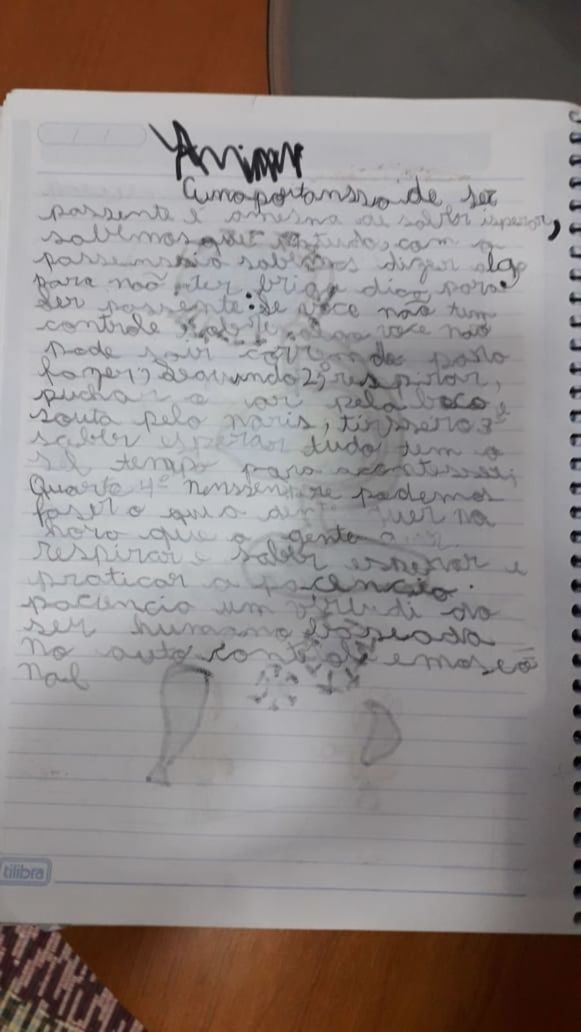 Aumaportanssia de ser
passente é a mesma de saber isperar,
sabemos que contudo, com a
passenssia sabemos dizer algo
para não ter briga dicas para
ser passente: se voce não tem
controle sobre algo voce não
pode sair correndo para
fazer; segundo 2º, respirar,
puchar o ar pela boca e
souta pelo naris, tirssero 3º
saber esperar tudo tem o
seu tempo para acontesser;
Quarto 4º nenssempre podemos
faser o que a gente quer na
hora que a gente
respirar e saber esperar e
praticar a pacencia.
pacencia um
ser humano baseada
no auto controle emoseo
nal
tilibra